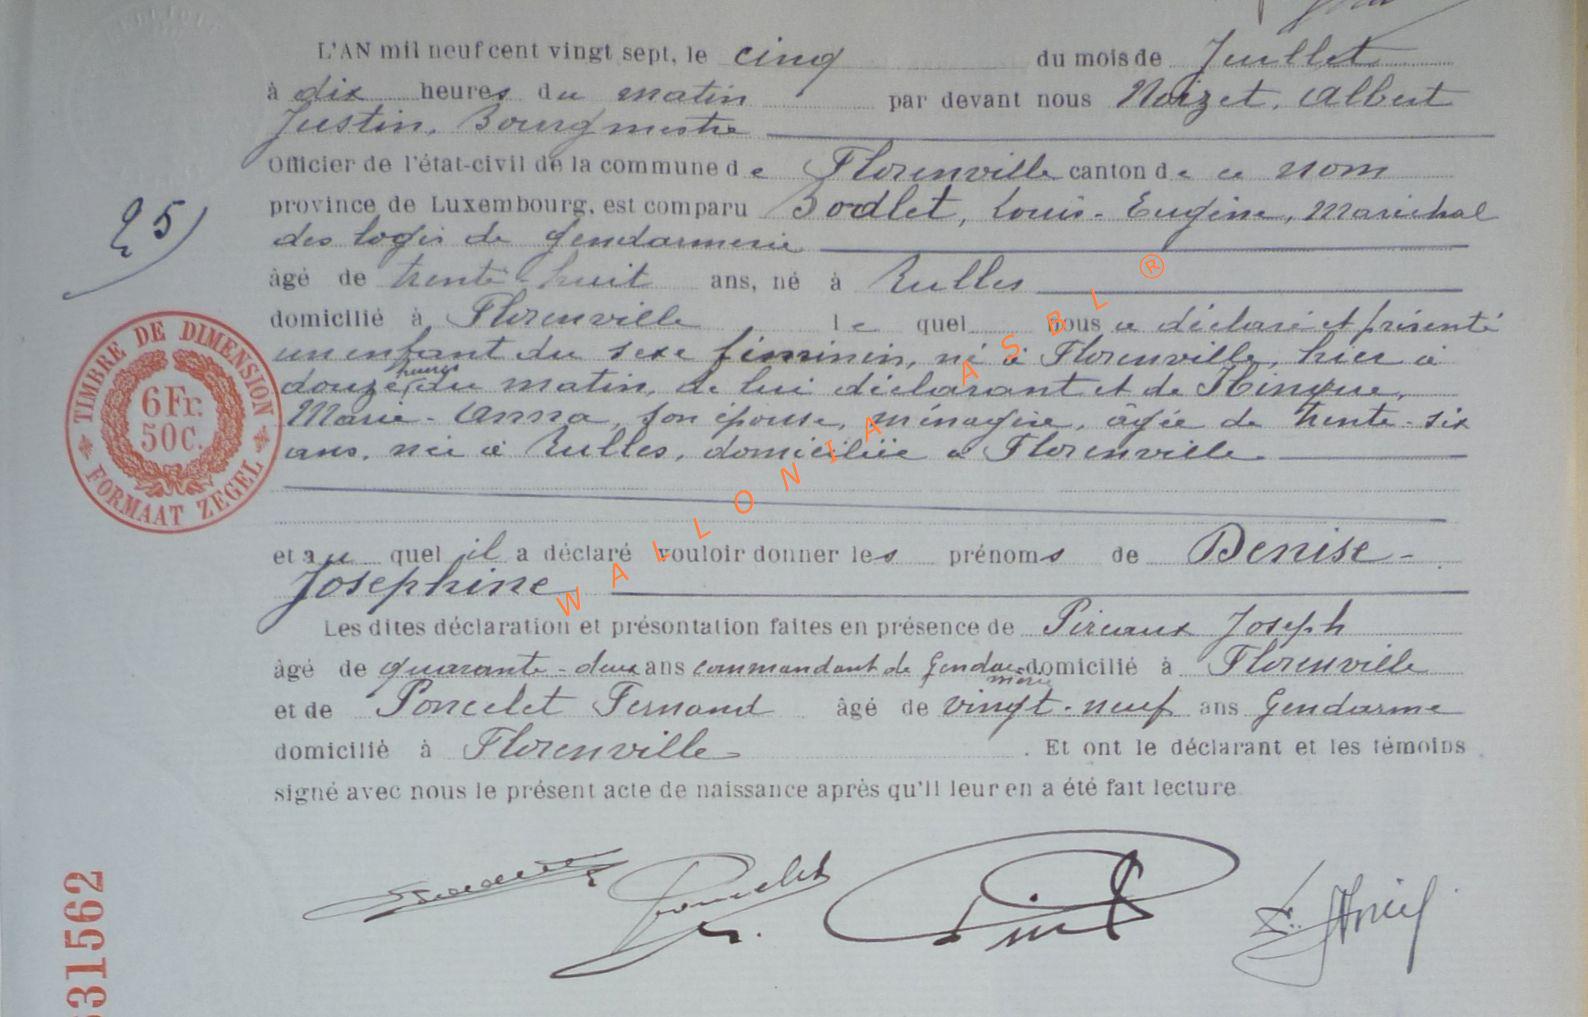 L'AN mil neuf cent vingt sept, le cinq du mois de Juillet
à dix heures du matin par devant nous Noizet, Albert
Justin, Bourgmestre
Officier de l'état-civil de la commune de Florenville canton de ce nom
province de Luxembourg, est comparu Bodlet, Louis-Eugène, Maréchal
des logis de gendarmerie
âgé de trente huit ans, né à Rulles
domicilié à Florenville lequel nous a déclaré et présenté
un enfant du sexe féminin, né à Florenville, hier à
douze heures du matin, de lui déclarant et de Hinque,
Marie-Anna, son épouse, ménagère, âgée de trente-six
ans, née à Rulles, domiciliée à Florenville
et auquel il a déclaré vouloir donner les prénoms de Denise-
Josephine
Les dites déclaration et présontation faites en présence de Pireaux Joseph
âgé de quarante-deux ans commandant de Gendarmerie domicilié à Florenville
et de Poncelet Fernand âgé de vingt-neuf ans Gendarme
domicilié à Florenville. Et ont le déclarant et les témoins
signé avec nous le présent acte de naissance après qu'il leur en a été fait lecture
25)
TIMBRE DE DIMENSION
6 Fr.
50C.
FORMAAT ZEGEL
31562
WALLONIA ASBL ®
Poncelet